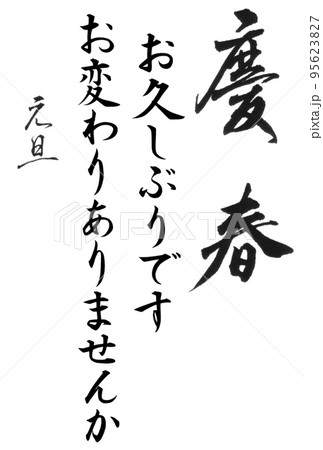 慶春
お久しぶりです
お変わりありませんか
元旦
PIXTA
pixta.jp - 95623827